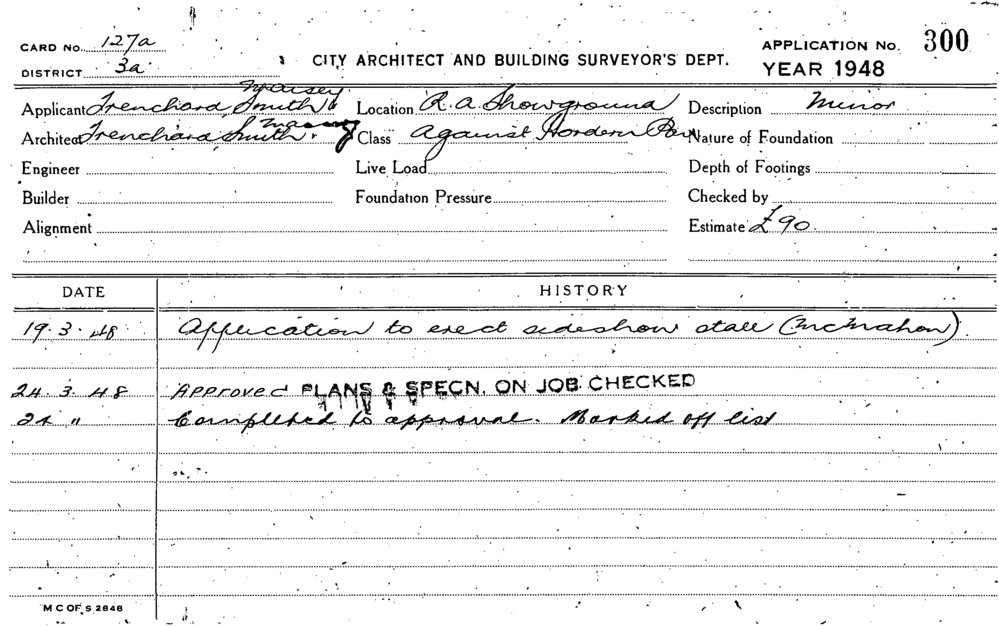 CARD No. 127a
DISTRICT 3a
CITY ARCHITECT AND BUILDING SURVEYOR'S DEPT.
APPLICATION No. 300
YEAR 1948
Applicant Trenchard Smith & Maisey
Location R.A. Showground
Description Minor
Architect Trenchard Smith & Maisey
Class against Hordern Pav
Nature of Foundation
Engineer
Live Load
Depth of Footings
Builder
Foundation Pressure
Checked by
Alignment
Estimate £90
DATE
HISTORY
19.3.48 Application to erect sideshow stall (McMahon).
24.3.48 Approved PLANS & SPECN. ON JOB CHECKED
24 " Completed to approval. Marked off list
M C OF S 2848